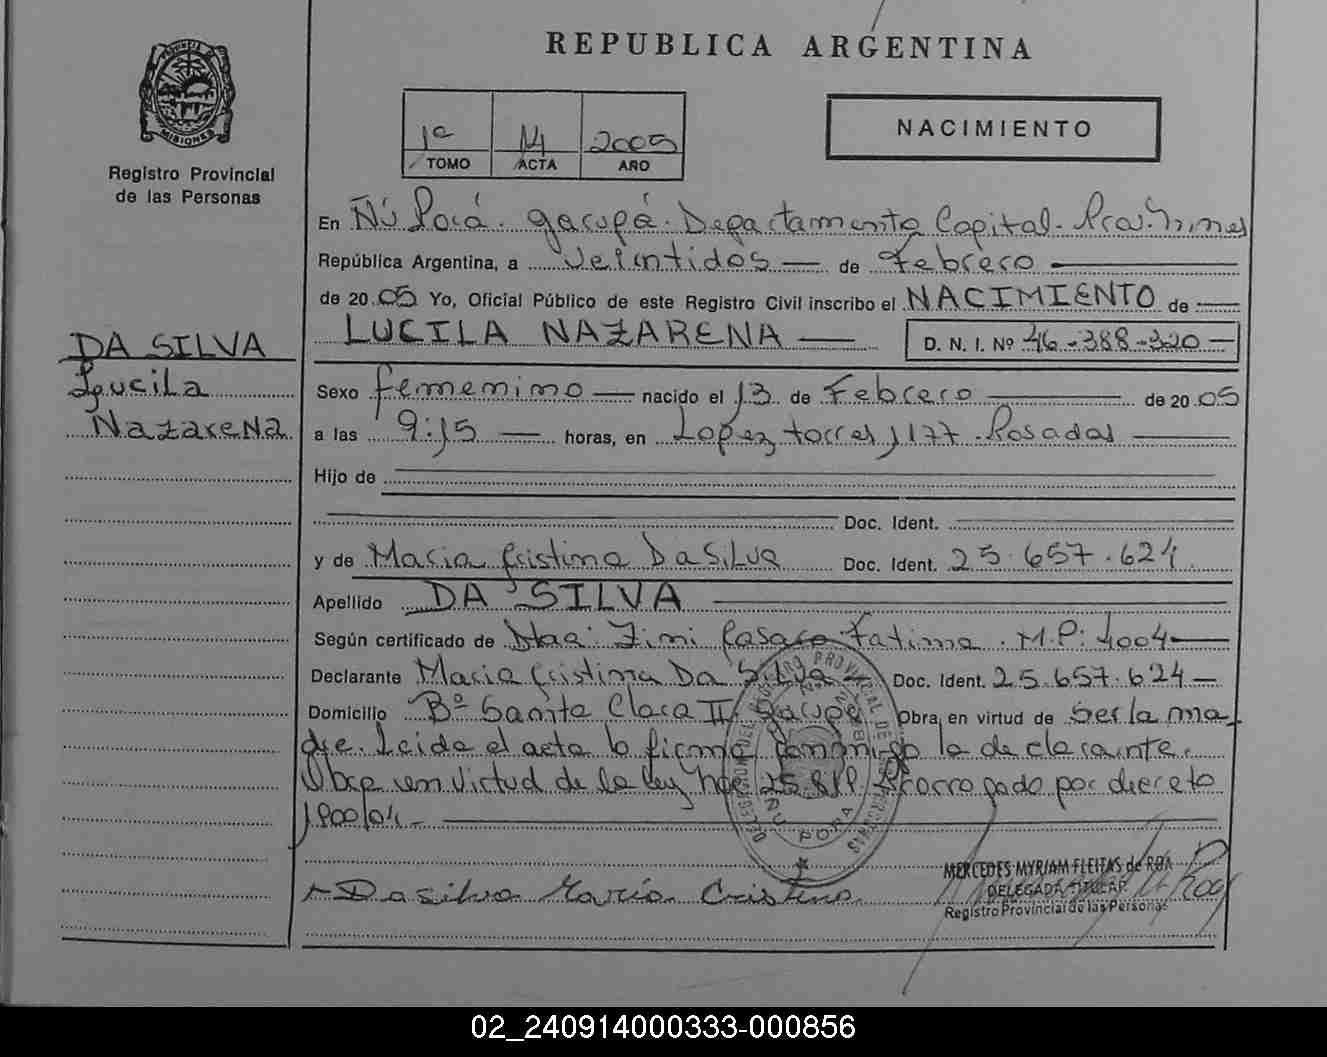 REPUBLICA ARGENTINA
MISIONES
Registro Provincial
de las Personas
1º 14 2005
TOMO ACTA AÑO
NACIMIENTO
En Ñú Porá. Garupá. Departamento Capital. Misiones
República Argentina, a Veintidos — de Febrero —
de 2005 Yo, Oficial Público de este Registro Civil inscribo el NACIMIENTO de
LUCILA NAZARENA — D. N. I. Nº 46-388-320 —
DA SILVA
Lucila
Nazarena
Sexo femenino — nacido el 13 de Febrero — de 2005
a las 9:15 — horas, en Lopez torres 1177. Posadas —
Hijo de
Doc. Ident.
y de Maria Cristina Da SiLva Doc. Ident. 25.657.624
Apellido DA SILVA —
Según certificado de Fatima. M.P: 4004 —
Declarante Maria Cristina Da Silva — Doc. Ident. 25.657.624 —
Domicilio Bº Santa Clara II. Garupá Obra, en virtud de ser la ma-
dre. Leida el acta la firma conmigo la declarante.
Obra en virtud de la ley nro 25.819 Prorrogado por decreto
1900/04 —
DELEGACION DEL REGISTRO PROVINCIAL DE LAS PERSONAS
ÑU PORA
Da silva María Cristina
MERCEDES MYRIAM FLEITAS de ROA
DELEGADA TITULAR
Registro Provincial de las Personas
02_240914000333-000856